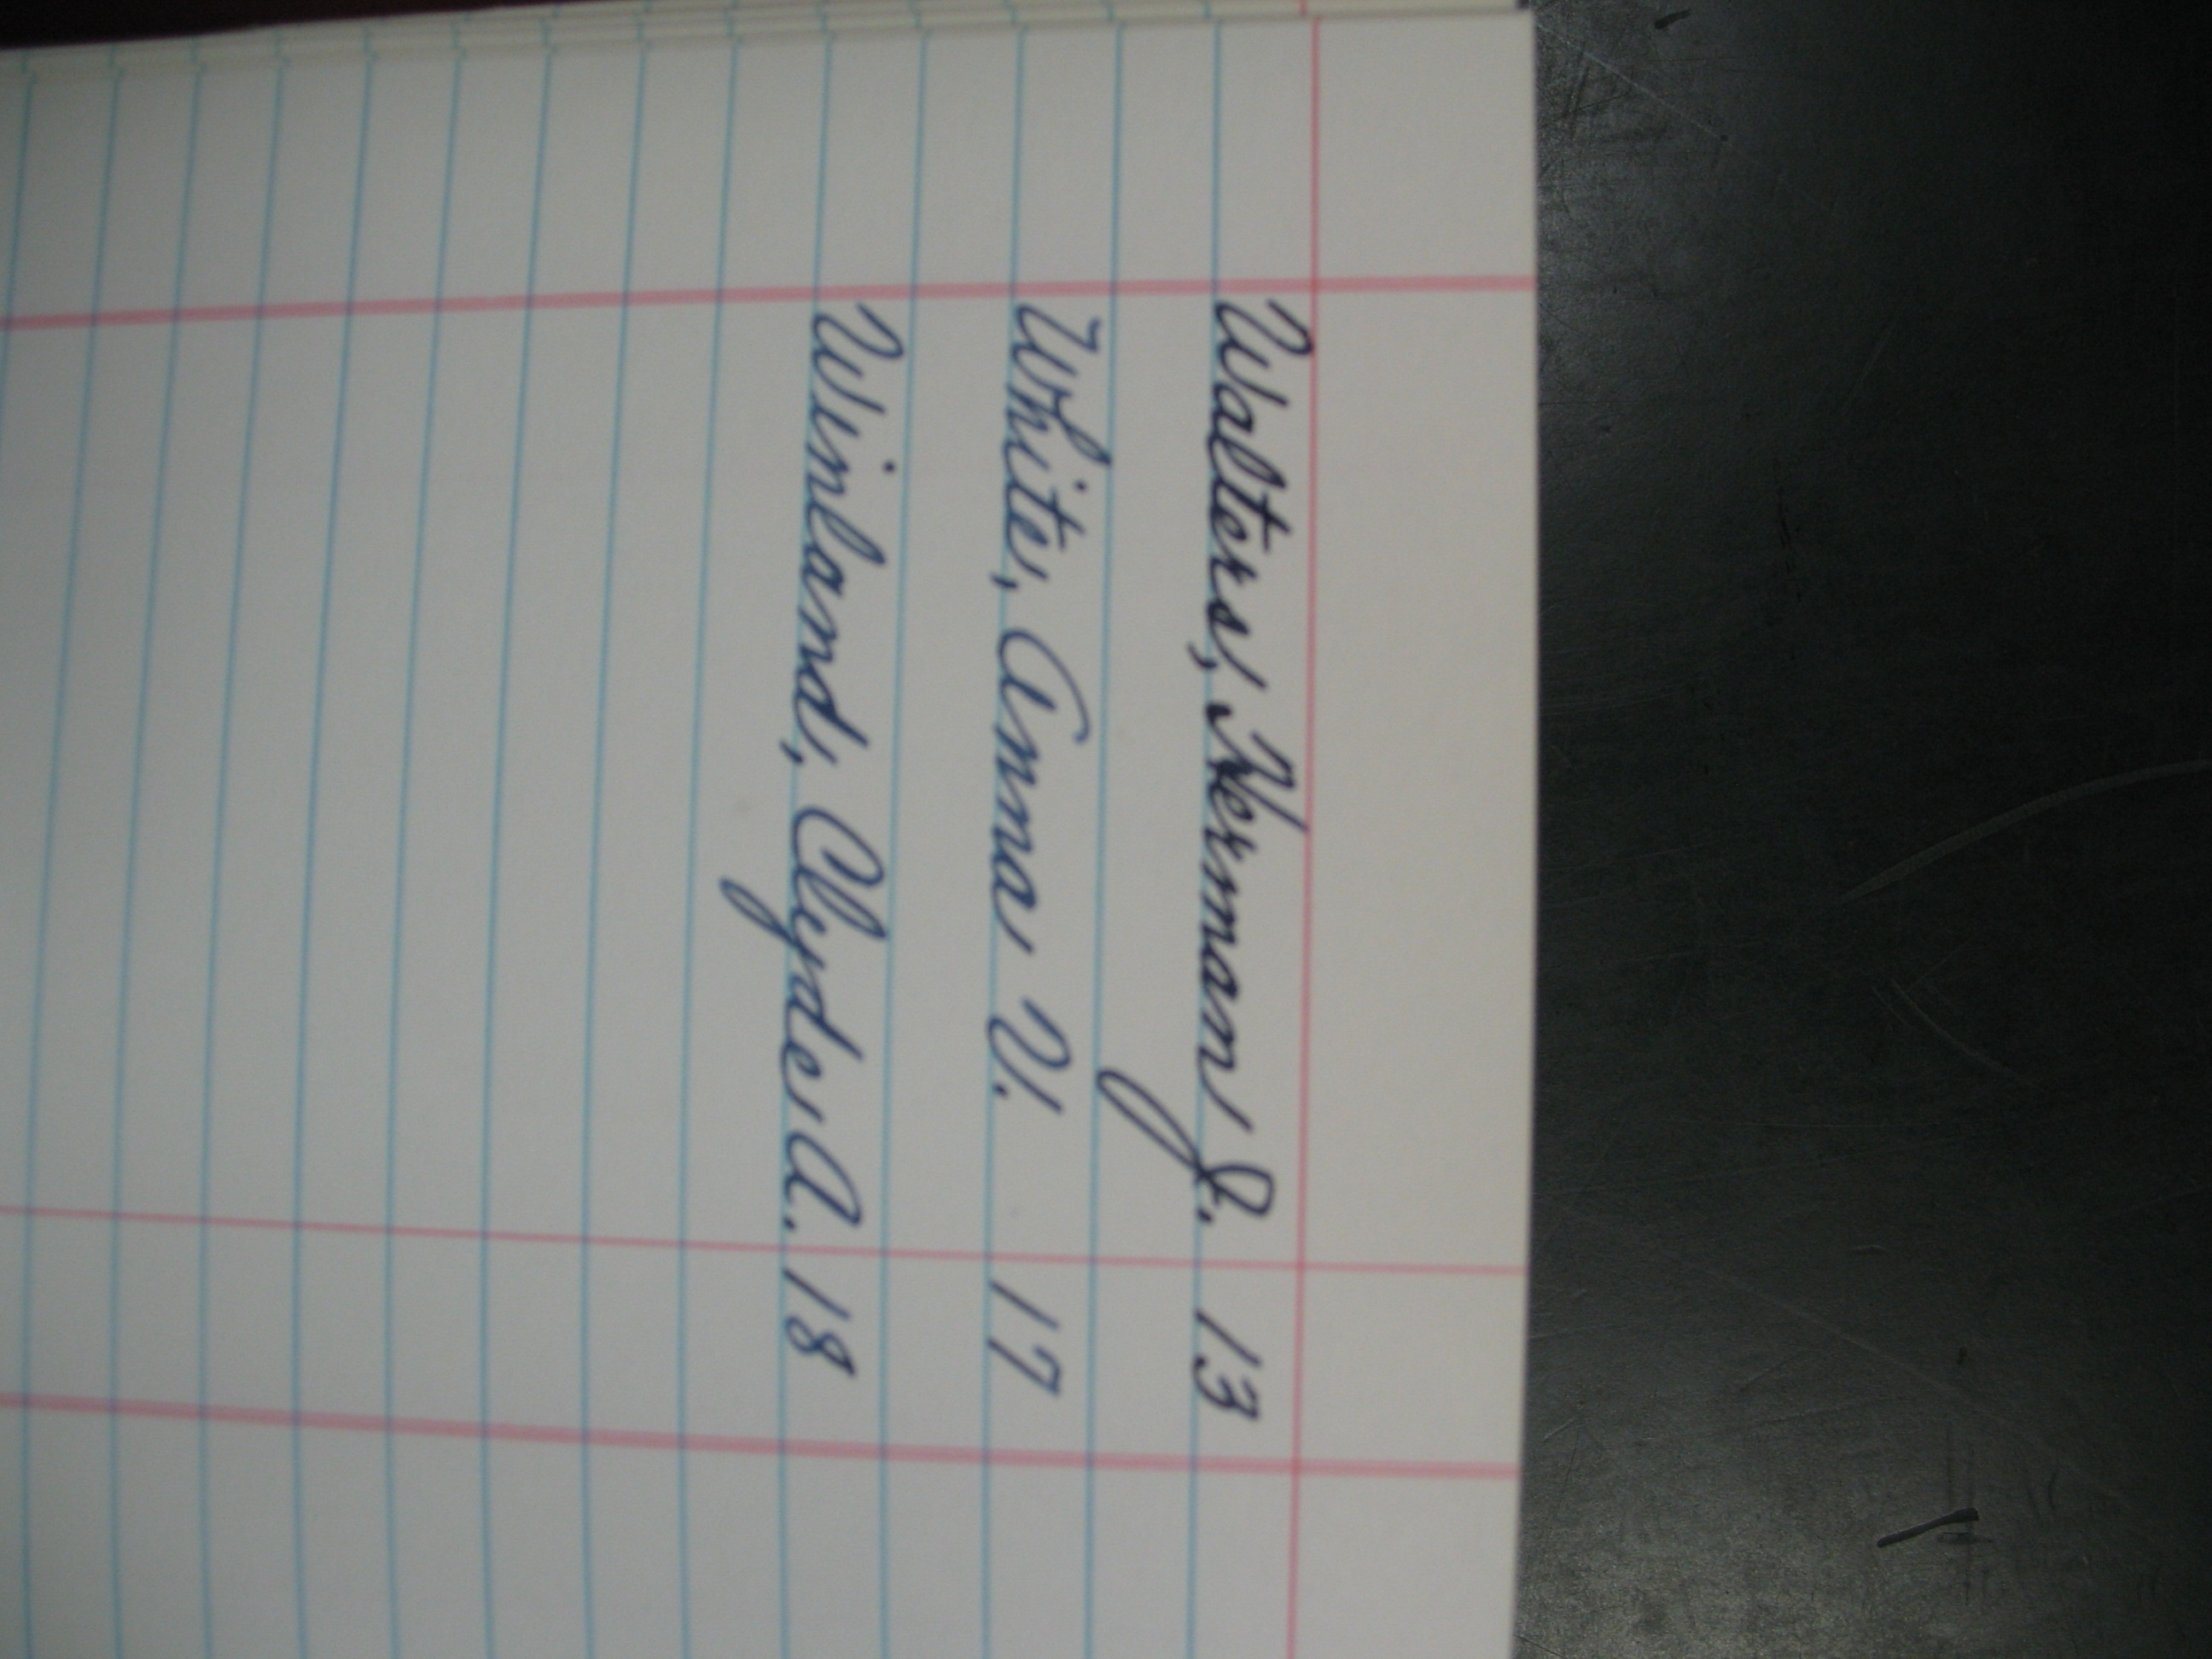 Walters, Herman J. 13
White, Anna V. 17
Wineland, Clyde A. 18